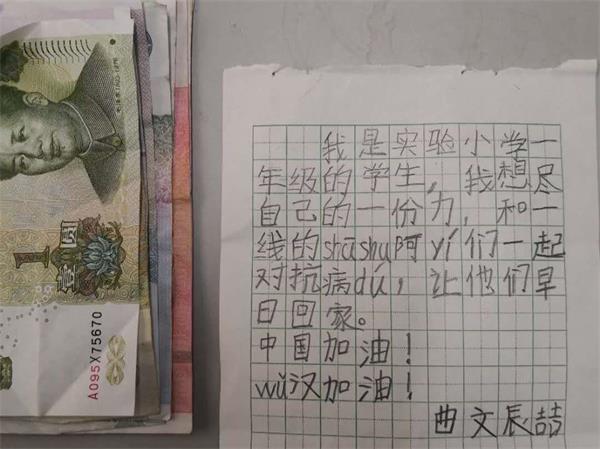 1
壹圆
A095X75670
我是实验小学一
年级的学生，我想尽
自己的一份力，和一
线的shūshu阿yí们一起
对抗病dú，让他们早
日回家。
中国加油！
wǔ汉加油！
曲文辰喆